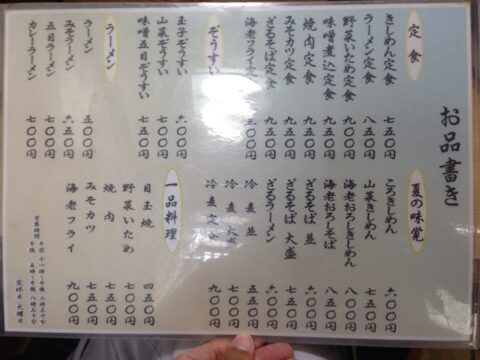 お品書き
定食
きしめん定食 七五〇円
ラーメン定食 八五〇円
野菜いため定食 九〇〇円
味噌煮込定食 九五〇円
焼肉定食 九五〇円
みそカツ定食 九五〇円
ざるそば定食 九五〇円
海老フライ定食
ぞうすい
玉子ぞうすい 六〇〇円
山菜ぞうすい 七〇〇円
味噌五目ぞうすい 七五〇円
ラーメン
ラーメン 五〇〇円
みそラーメン 六五〇円
五目ラーメン 七〇〇円
カレーラーメン 七〇〇円
夏の味覚
ころきしめん 六〇〇円
山菜きしめん 七五〇円
海老おろしきしめん 九〇〇円
海老おろしそば 八五〇円
ざるそば 並 六〇〇円
ざるそば 大盛 七五〇円
ざるラーメン 六〇〇円
冷麦 並 五五〇円
冷麦 大盛 七〇〇円
冷麦定食 九〇〇円
一品料理
目玉焼 四五〇円
野菜いため 七五〇円
焼肉 七五〇円
みそカツ 七五〇円
海老フライ 九〇〇円
営業時間 午前 十一時〜午後 二時三十分
午後 五時〜午後 八時三十分
定休日 火曜日